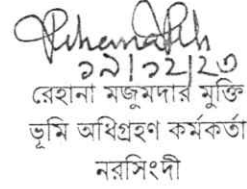 ১৯/১২/২৩
রেহানা মজুমদার মুক্তি
ভূমি অধিগ্রহণ কর্মকর্তা
নরসিংদী